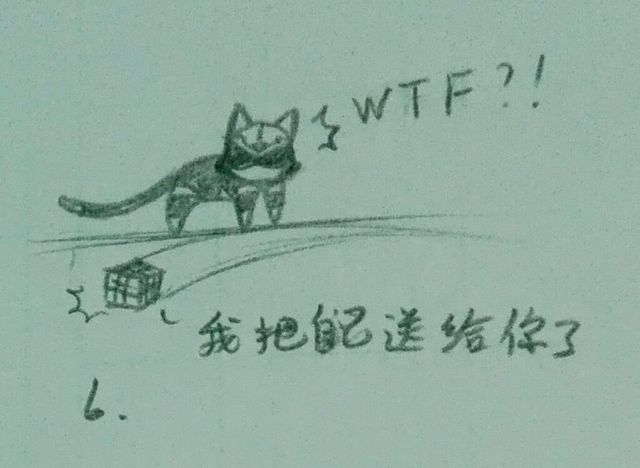 WTF?!
我把自己送给你了
6.